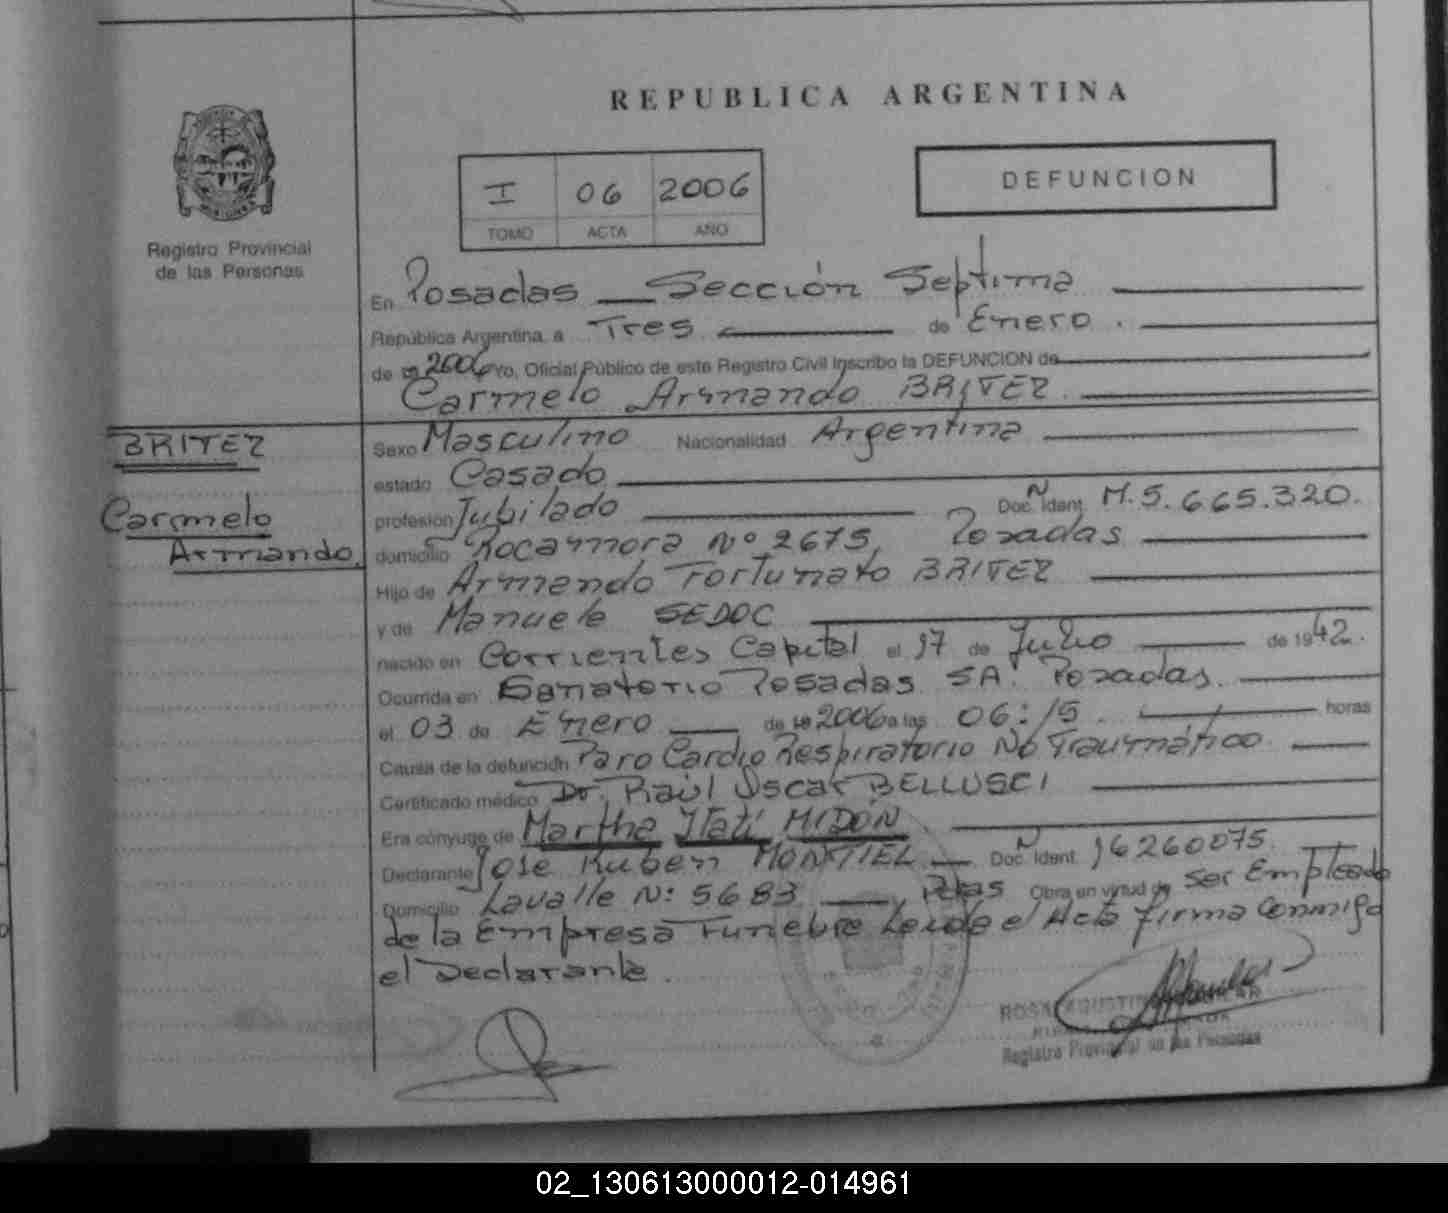 REPUBLICA ARGENTINA
Registro Provincial
de las Personas
I 06 2006
TOMO ACTA AÑO
DEFUNCION
En Posadas Sección Septima
República Argentina, a Tres de Enero.
de 19 2006 Yo, Oficial Público de este Registro Civil inscribo la DEFUNCION de
Carmelo Armando BRITEZ
BRITEZ
Carmelo
Armando.
Sexo Masculino Nacionalidad Argentina
estado Casado
profesión Jubilado Doc. Ident. M.5.665.320.
domicilio Rocamora Nº 2675, Posadas
Hijo de Armando Fortunato BRITEZ
y de Manuela SEDOC
nacido en Corrientes Capital el 17 de Julio de 1942.
Ocurrida en Sanatorio Posadas SA. Posadas.
el 03 de Enero de 19 2006 a las 06:15 horas
Causa de la defunción Paro Cardio Respiratorio No Traumático.
Certificado médico Dr. Raúl Oscar BELLUSCI
Era cónyuge de Martha Itatí MIDÓN
Declarante José Ruben MONTIEL Doc. Ident. 16260075.
Domicilio Lavalle N: 5683, Pdas Obra en virtud de ser Empleado
de la Empresa Funebre Leida el Acta firma conmigo
el Declarante.
Registro Provincial de las Personas
02_130613000012-014961